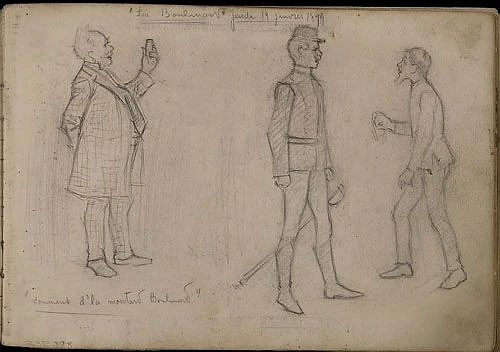 "Les Boulinard" Jeudi 19 janvier 1899
"comment d'la moutard Boulinard"